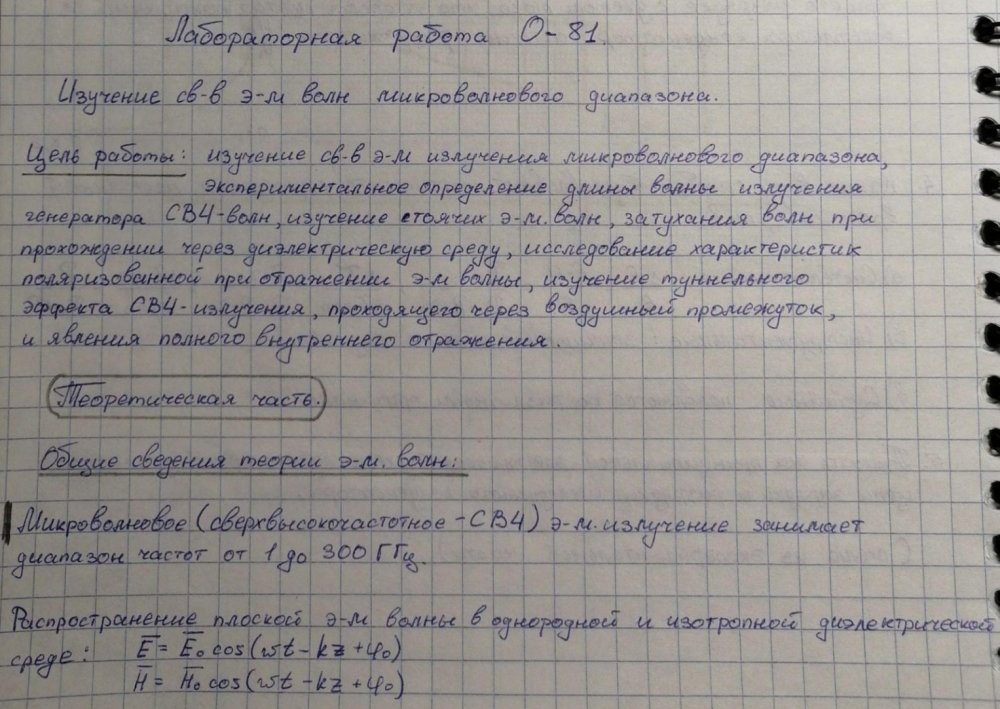 Лабораторная работа О-81.
Изучение св-в э-м волн микроволнового диапазона.
Цель работы: изучение св-в э-м излучения микроволнового диапазона,
экспериментальное определение длины волны излучения
генератора СВЧ-волн, изучение стоячих э-м. волн, затухания волн при
прохождении через диэлектрическую среду, исследование характеристик
поляризованной при отражении э-м волны, изучение туннельного
эффекта СВЧ-излучения, проходящего через воздушный промежуток,
и явления полного внутреннего отражения.
Теоретическая часть.
Общие сведения теории э-м. волн:
Микроволновое (сверхвысокочастотное - СВЧ) э-м. излучение занимает
диапазон частот от 1 до 300 ГГц.
Распространение плоской э-м волны в однородной и изотропной диэлектрической
среде: E̅ = E̅₀ cos(ωt - kz + φ₀)
H̅ = H̅₀ cos(ωt - kz + φ₀)